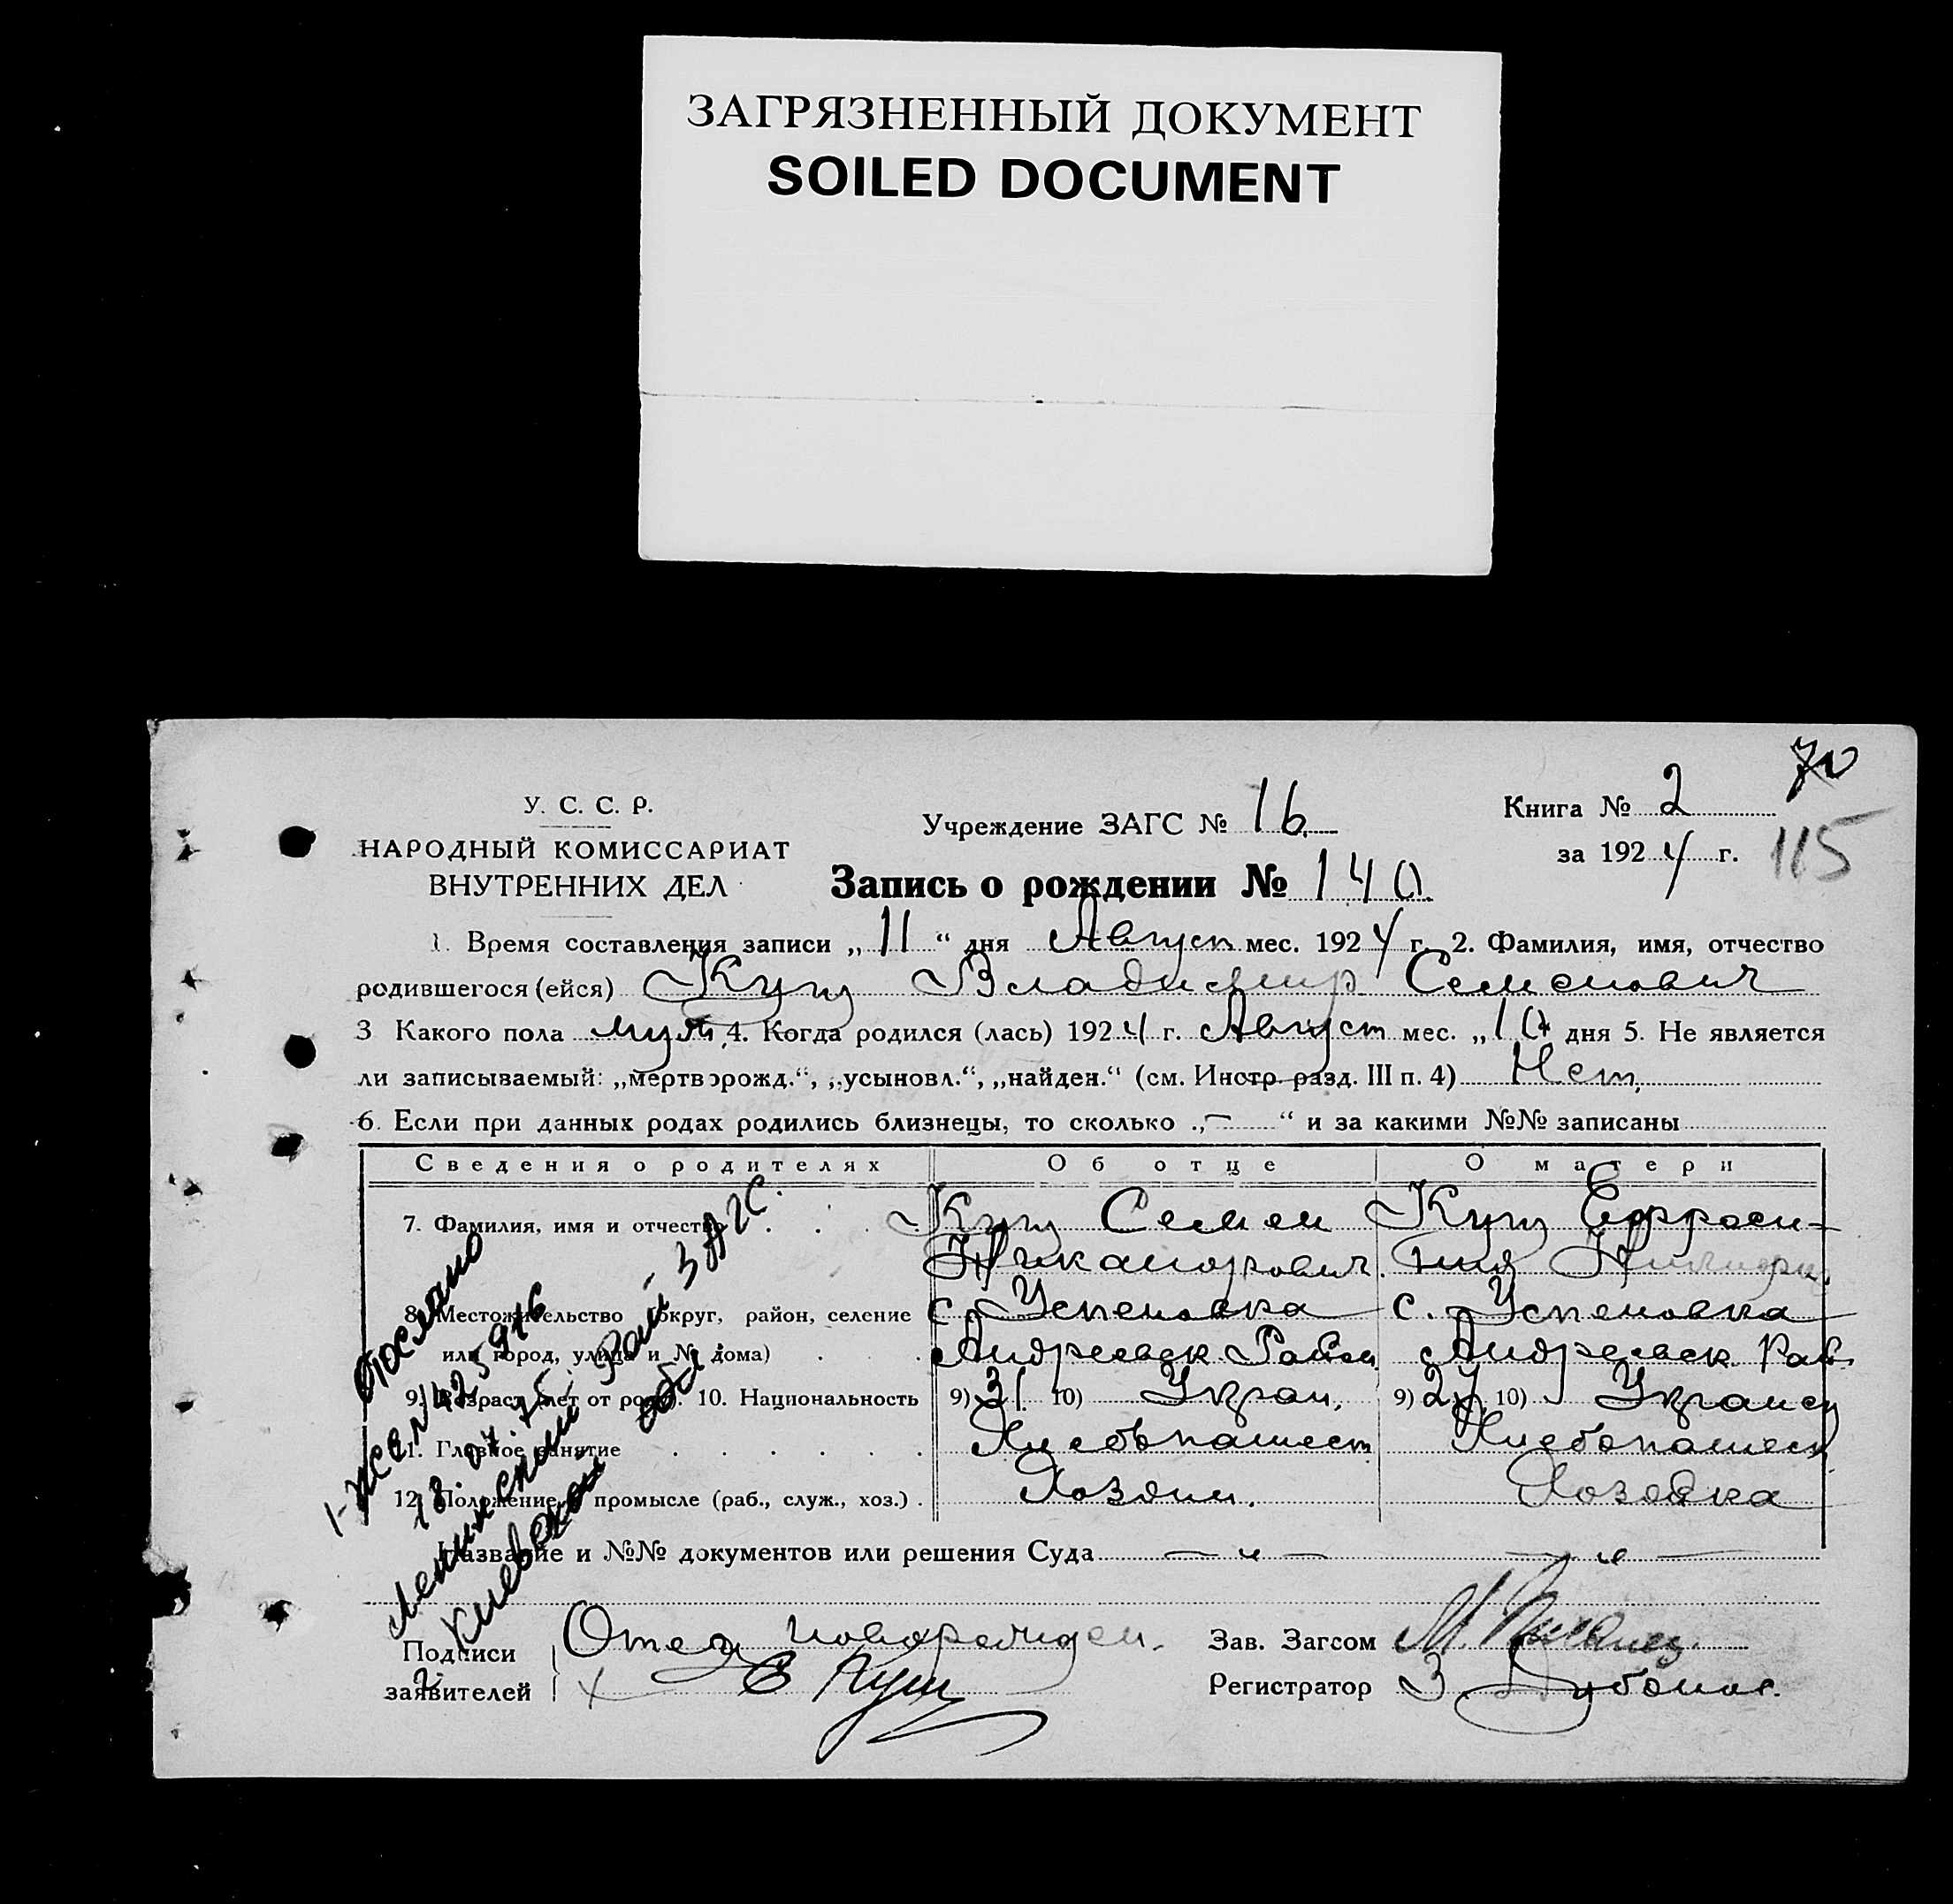 ЗАГРЯЗНЕННЫЙ ДОКУМЕНТ
SOILED DOCUMENT
70
У. С. С. Р.
НАРОДНЫЙ КОМИССАРИАТ
ВНУТРЕННИХ ДЕЛ
Учреждение ЗАГС № 16
Книга № 2
за 1924 г.
115
Запись о рождении № 140
1. Время составления записи „ 11 “ дня Август мес. 1924 г. 2. Фамилия, имя, отчество
родившегося (ейся) Кущ Владимир Семенович
3 Какого пола муж, 4. Когда родился (лась) 1924 г. Август мес. „ 10 дня 5. Не является
ли записываемый: „мертворожд.“, „усыновл.“, „найден.“ (см. Инстр. разд. III п. 4) Нет
6. Если при данных родах родились близнецы, то сколько „ — “ и за какими №№ записаны
Сведения о родителях Об отце О матери
7. Фамилия, имя и отчество Кущ Семен Кущ Ефроси-
Никанорович. ния
8. Местожительство округ, район, селение с. Успеновка с. Успеновка
или город, улица и № дома) Андреевск Район Андреевск Рай.
9. Возраст лет от роду. 10. Национальность 9) 31 10) Украи. 9) 27 10) Украинс
11. Главное занятие Хлебопашест Хлебопашест
12. Положение в промысле (раб., служ., хоз.) Хозяин. Хозяйка
Название и №№ документов или решения Суда — „ — — „ —
Подписи заявителей Отец новорожден.
С Кущ
Зав. Загсом М.
Регистратор З.
Послано
1-ЖСЕЛ425976
18.04.75
Ленинский Рай ЗАГС.
Киевской обл.